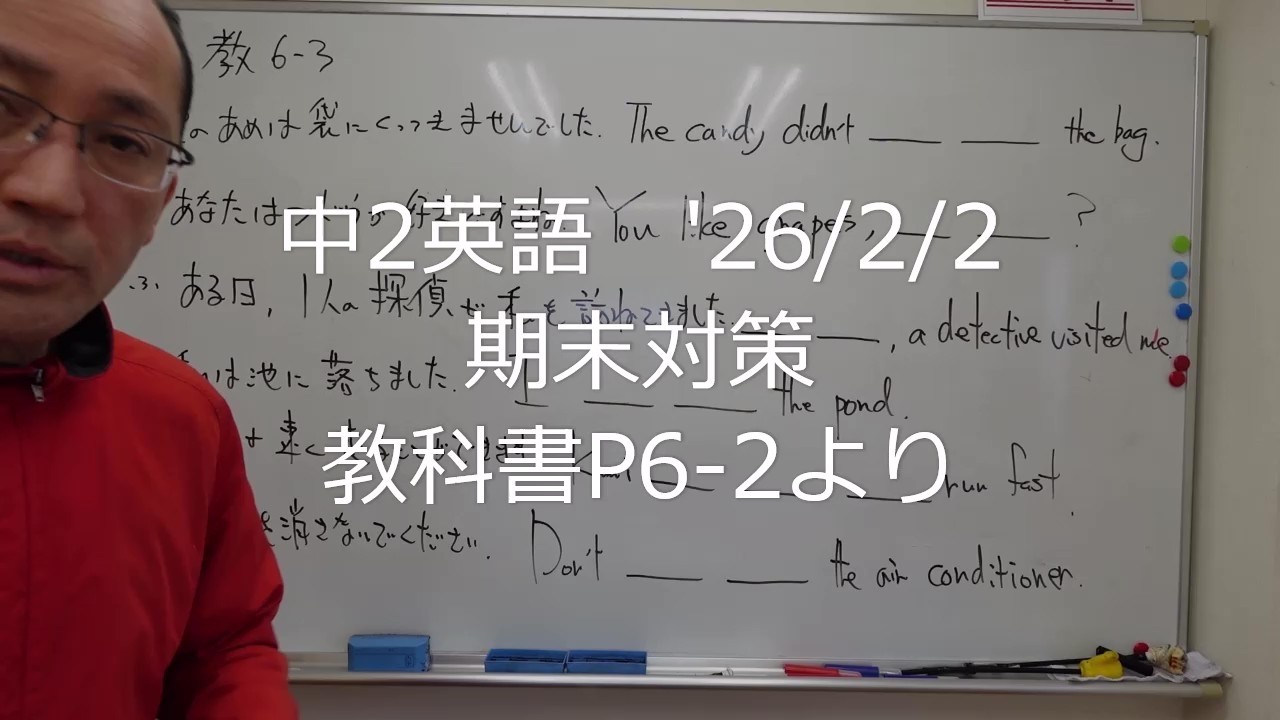 教 6-3
のあめは袋にくっつきませんでした. The candy didn't the bag.
あなたは You like crapes, ?
中2英語 '26/2/2
.3. ある日, 1人の探偵が私を訪ねてきました. , a detective visited me.
期末対策
は池に落ちました. I the pond.
教科書P6-2より
速く run fast.
を消さないでください. Don't the air conditioner.